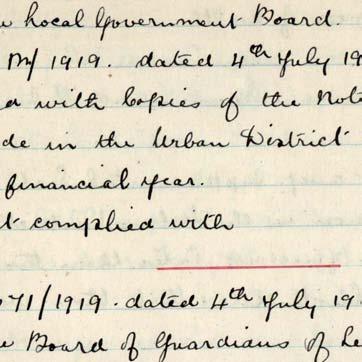 Local Government Board.
M/1919. dated 4th July 19
with Copies of the Not
de in the Urban District
financial year.
t complied with
71/1919. dated 4th July 19
e Board of Guardians of Le